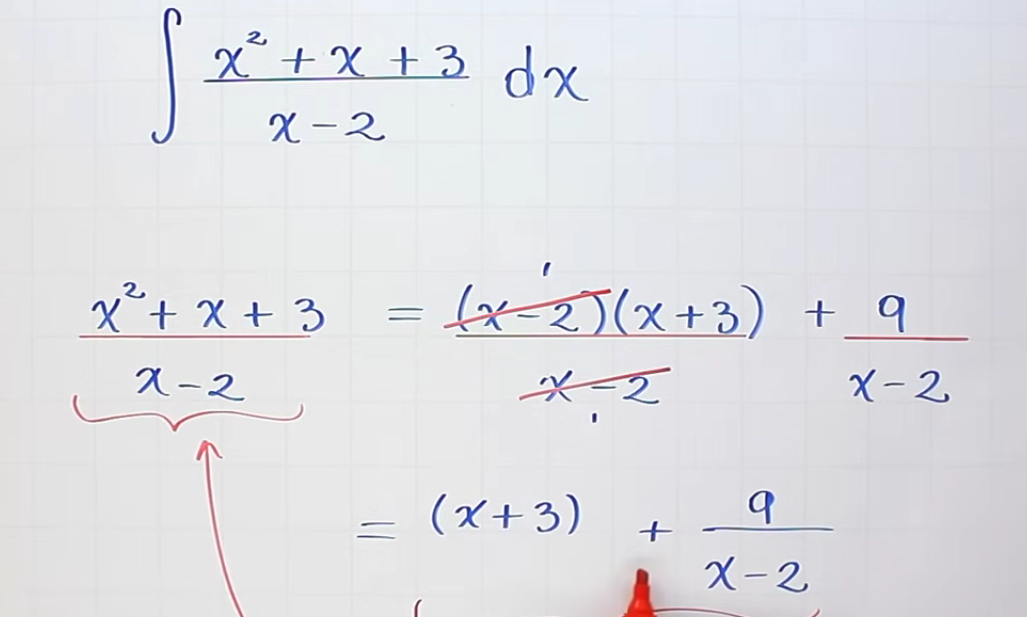 ∫ (x² + x + 3)/(x - 2) dx
(x² + x + 3)/(x - 2) = ((x - 2)(x + 3))/(x - 2) + 9/(x - 2)
= (x + 3) + 9/(x - 2)